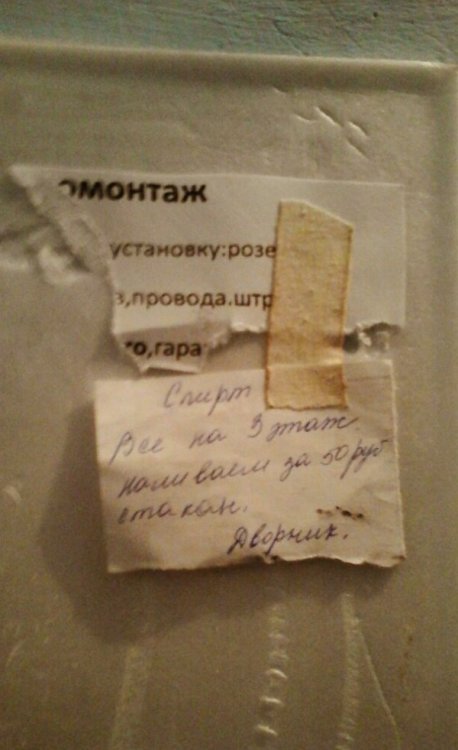 омонтаж
установку:розе
з,провода.штр
го,гара
Спирт
Все на 3 этаж
наливаем за 50 руб
стакан.
Дворник.